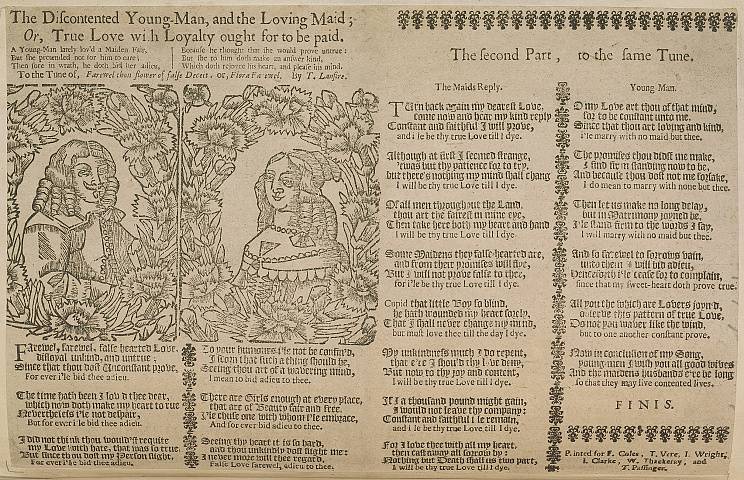 The Discontented Young-Man, and the Loving Maid;
Or, True Love with Loyalty ought for to be paid.
A Young-Man lately lov'd a Maiden Fair,
But she pretended not for him to care;
Then fore in wrath, he doth bid her adieu,
Because he thought that she would prove untrue:
But she to him doth make an answer kind,
Which doth rejoyce his heart, and please his mind.
To the Tune of, Farewel thou flower of false Deceit, or, Flora Farewel. By T. Lanfire.
Farewel, farewel, false hearted Love,
disloyal unkind, and untrue:
Since that thou dost Unconstant prove,
For ever i'le bid thee adieu.
The time hath been I lov'd thee dear,
which now doth make my heart to rue
Nevertheless i'le not despair,
But for ever i'le bid thee adieu.
I did not think thou would'st requite
my Love with hate, that was so true
But since thou dost my Person slight,
For ever i'le bid thee adieu.
To your humours i'le not be confin'd,
I scorn that such a thing should be,
Seeing thou art of a wavering mind,
I mean to bid adieu to thee.
There are Girls enough at every place,
that are of Beauty fair and free.
I'le chuse one with whom i'le embrace,
And for ever bid adieu to thee.
Seeing thy heart it is so hard,
and thou unkindly dost slight me:
I never more will thee regard,
False Love farewel, adieu to thee.
The second Part, to the same Tune.
The Maids Reply.
Turn back again my dearest Love,
come now and hear my kind reply
Constant and faithful I will prove,
and i'le be thy true Love till I dye.
Although at first I seemed strange,
'twas but thy patience for to try,
but there's nothing my mind shall chang
I will be thy true Love till I dye.
Of all men throughout the Land,
thou art the fairest in mine eye,
Then take here both my heart and hand
I will be thy true Love till I dye.
Some Maidens they false-hearted are,
and from their promises will flye,
But I will not prove false to thee,
for i'le be thy true Love till I dye.
Cupid that little Boy so blind,
he hath wounded my heart sorely,
That I shall never change my mind,
but must love thee till the day I dye.
My unkindness much I do repent,
that e're I should thy love deny,
But now to thy joy and content,
I will be thy true Love till I dye.
If I a thousand pound might gain,
I would not leave thy company:
Constant and faithful i'le remain,
and i'le be thy true Love till I dye.
For I love thee with all my heart,
then cast away all sorrow by:
Nothing but Death shall us two part,
I will be thy true Love till I dye.
Young-Man.
O my Love art thou of that mind,
for to be constant unto me.
Since that thou art loving and kind,
I'le marry with no maid but thee.
The promises thou didst me make,
I find firm standing now to be,
And because thou dost not me forsake,
I do mean to marry with none but thee.
Then let us make no long delay,
but in Matrimony joyned be,
I'le stand firm to the words I say,
I will marry with no maid but thee.
And so farewel to sorrows vain,
unto them i will bid adieu,
Henceforth i'le cease for to complain,
since that my sweet-heart doth prove true.
All you the which are Lovers joyn'd,
observe this pattern of true Love,
Do not you waver like the wind,
but to one another constant prove.
Now in conclusion of my Song,
young-men I wish you all good wives
And the maidens husbands e're be long
so that they may live contented lives.
FINIS.
Printed for F. Coles, T. Vere, I. Wright,
I. Clarke, W. Thackeray, and
T. Passinger.